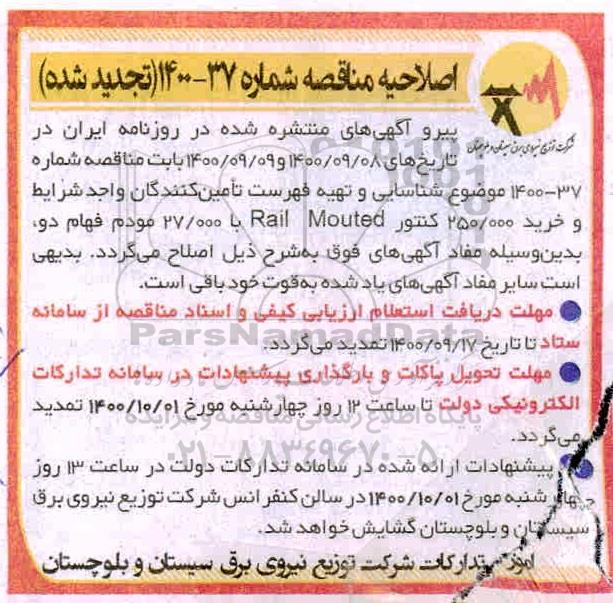 اصلاحیه مناقصه شماره ۳۷-۱۴۰۰(تجدید شده)
شرکت توزیع نیروی برق سیستان و بلوچستان
پیرو آگهی‌های منتشره شده در روزنامه ایران در
تاریخ‌های ۱۴۰۰/۰۹/۰۸ و ۱۴۰۰/۰۹/۰۹ بابت مناقصه شماره
۳۷-۱۴۰۰ موضوع شناسایی و تهیه فهرست تأمین‌کنندگان واجد شرایط
و خرید ۲۵۰/۰۰۰ کنتور Rail Mouted با ۲۷/۰۰۰ مودم فهام دو،
بدین‌وسیله مفاد آگهی‌های فوق به‌شرح ذیل اصلاح می‌گردد. بدیهی
است سایر مفاد آگهی‌های یاد شده به‌قوت خود باقی است.
● مهلت دریافت استعلام ارزیابی کیفی و اسناد مناقصه از سامانه
ستاد تا تاریخ ۱۴۰۰/۰۹/۱۷ تمدید می‌گردد.
ParsNamadData
● مهلت تحویل پاکات و بارگذاری پیشنهادات در سامانه تدارکات
الکترونیکی دولت تا ساعت ۱۲ روز چهارشنبه مورخ ۱۴۰۰/۱۰/۰۱ تمدید
می‌گردد.
پایگاه اطلاع رسانی مناقصه و مزایده
۰۲۱-۸۸۳۴۹۶۷۰-۵
● پیشنهادات ارائه شده در سامانه تدارکات دولت در ساعت ۱۳ روز
چهارشنبه مورخ ۱۴۰۰/۱۰/۰۱ در سالن کنفرانس شرکت توزیع نیروی برق
سیستان و بلوچستان گشایش خواهد شد.
امور تدارکات شرکت توزیع نیروی برق سیستان و بلوچستان